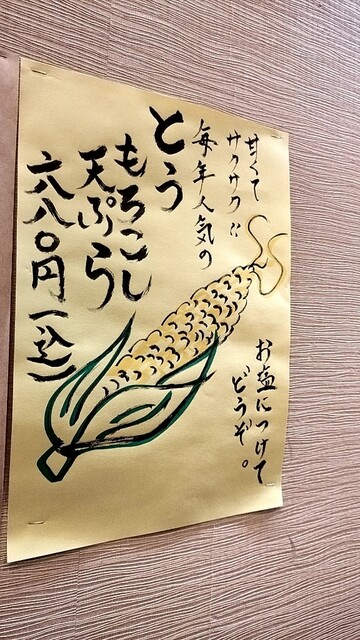 甘くて
サクサク!!
毎年人気の
とう
もろこし
天ぷら
六八〇円(込)
お塩につけて
どうぞ。